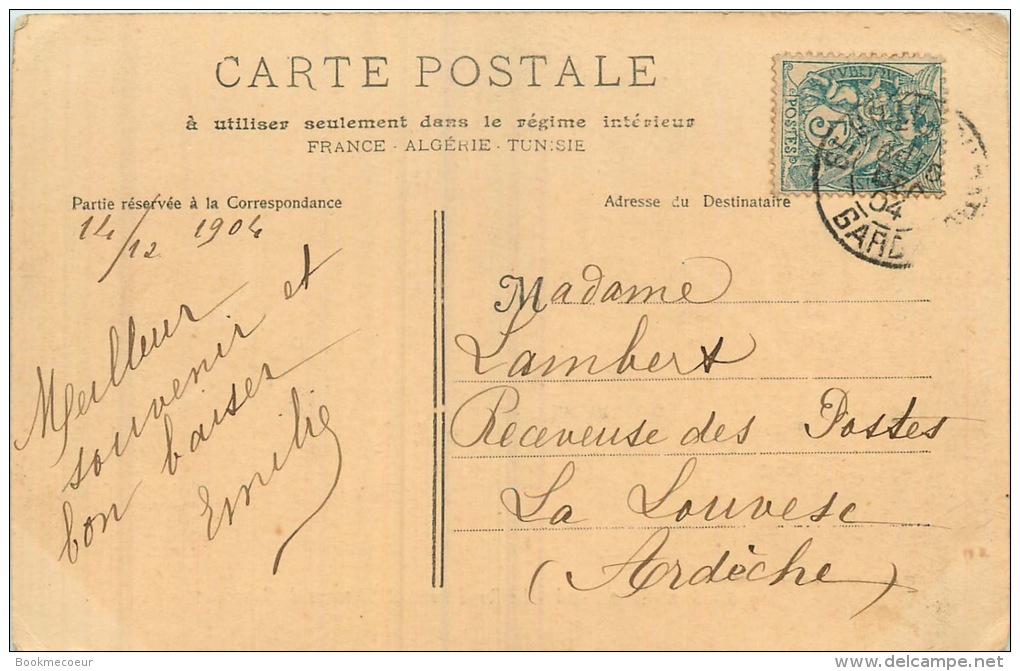 CARTE POSTALE
à utiliser seulement dans le régime intérieur
FRANCE - ALGÉRIE - TUNISIE
Partie réservée à la Correspondance
Adresse du Destinataire
POSTES
5
04
GARD
14/12 1904
Meilleur
souvenir et
bon baiser
Emilie
Madame
Lambert
Receveuse des Postes
La Louvesc
(Ardèche)
Bookmecoeur
http://www.delcampe.net